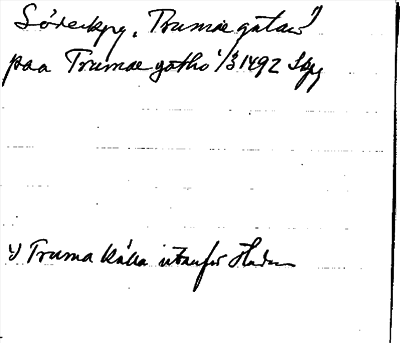 Söderkpg. Trumæ gatan 1)
paa Trumæ gatho 1/3 1492 Skpg
1) Truma källa utanför Staden